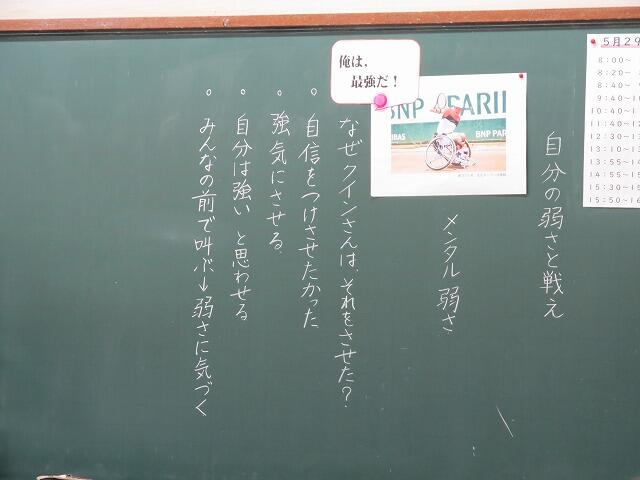 5月29
8:00～
8:20～
8:40～
9:40～
10:40～1
11:40～12
12:30～1
13:10～1
13:55～14
14:55～15
15:30～15
15:50～16
自分の弱さと戦え
BNP PARI
BAS
BNP PAR
メンタル 弱さ
俺は、
最強だ！
なぜクインさんは、それをさせた？
。自信をつけさせたかった
。強気にさせる
。自分は強い と思わせる
。みんなの前で叫ぶ→弱さに気づく